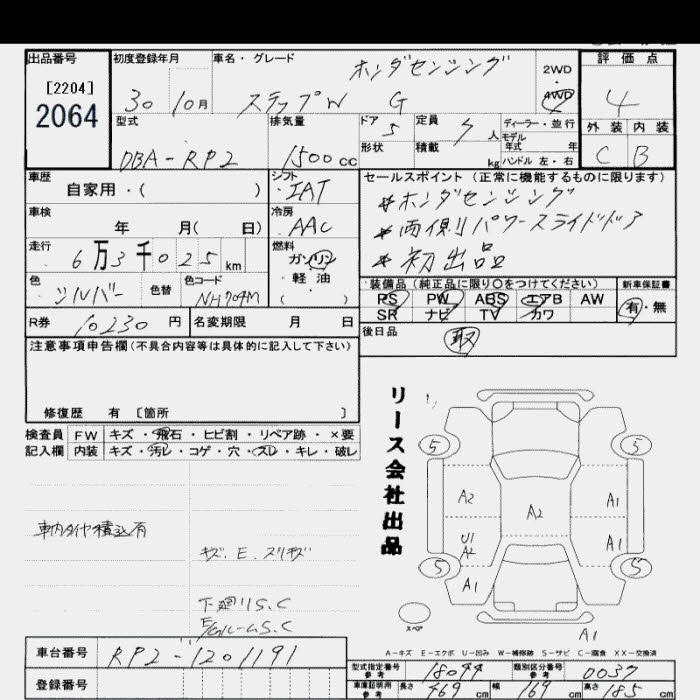 出品番号 初度登録年月 車名・グレード 評価点
[2204]
2064
30 10月 ホンダセンシング
ステップW G
2WD
・
4WD
4
型式 排気量 ドア 5 定員 7人 ディーラー・並行
モデル
年式 年
外装 内装
DBA-RP2 1500cc 形状 積載 kg ハンドル 左・右
C B
車歴 シフト セールスポイント(正常に機能するものに限ります)
自家用・( ) IAT
*ホンダセンシング
車検 冷房
年 月( 日) AAC
*両側パワースライドドア
走行 燃料
6万3千025km ガソリン
・
軽油
( )
*初出品
色 色替 色コード
シルバー NH704M
装備品(純正品に限り○をつけてください) 新車保証書
PS PW ABS エアB AW
SR ナビ TV カワ
有・無
R券 10230円 名変期限 月 日
後日品 取
注意事項申告欄(不具合内容等は具体的に記入して下さい)
修復歴 有 [箇所 ]
検査員 FW キズ・飛石・ヒビ割・リペア跡・×要
記入欄 内装 キズ・汚レ・コゲ・穴・スレ・キレ・破レ
リース会社出品
車内タイヤ積込有
キズ.E.スリキズ
下廻りS.C
E/GルームS.C
5 5
A2 A1
A2
U1
A2
A1
5 5
A1
スペア
A1
A-キズ E-エクボ U-凹み W-補修跡 S-サビ C-腐食 XX-交換済
車台番号 RP2-1201191
登録番号
型式指定番号
参考
18044
類別区分番号
参考
0037
車庫証明用
参考
長さ 469cm 幅 169cm 高さ 185cm